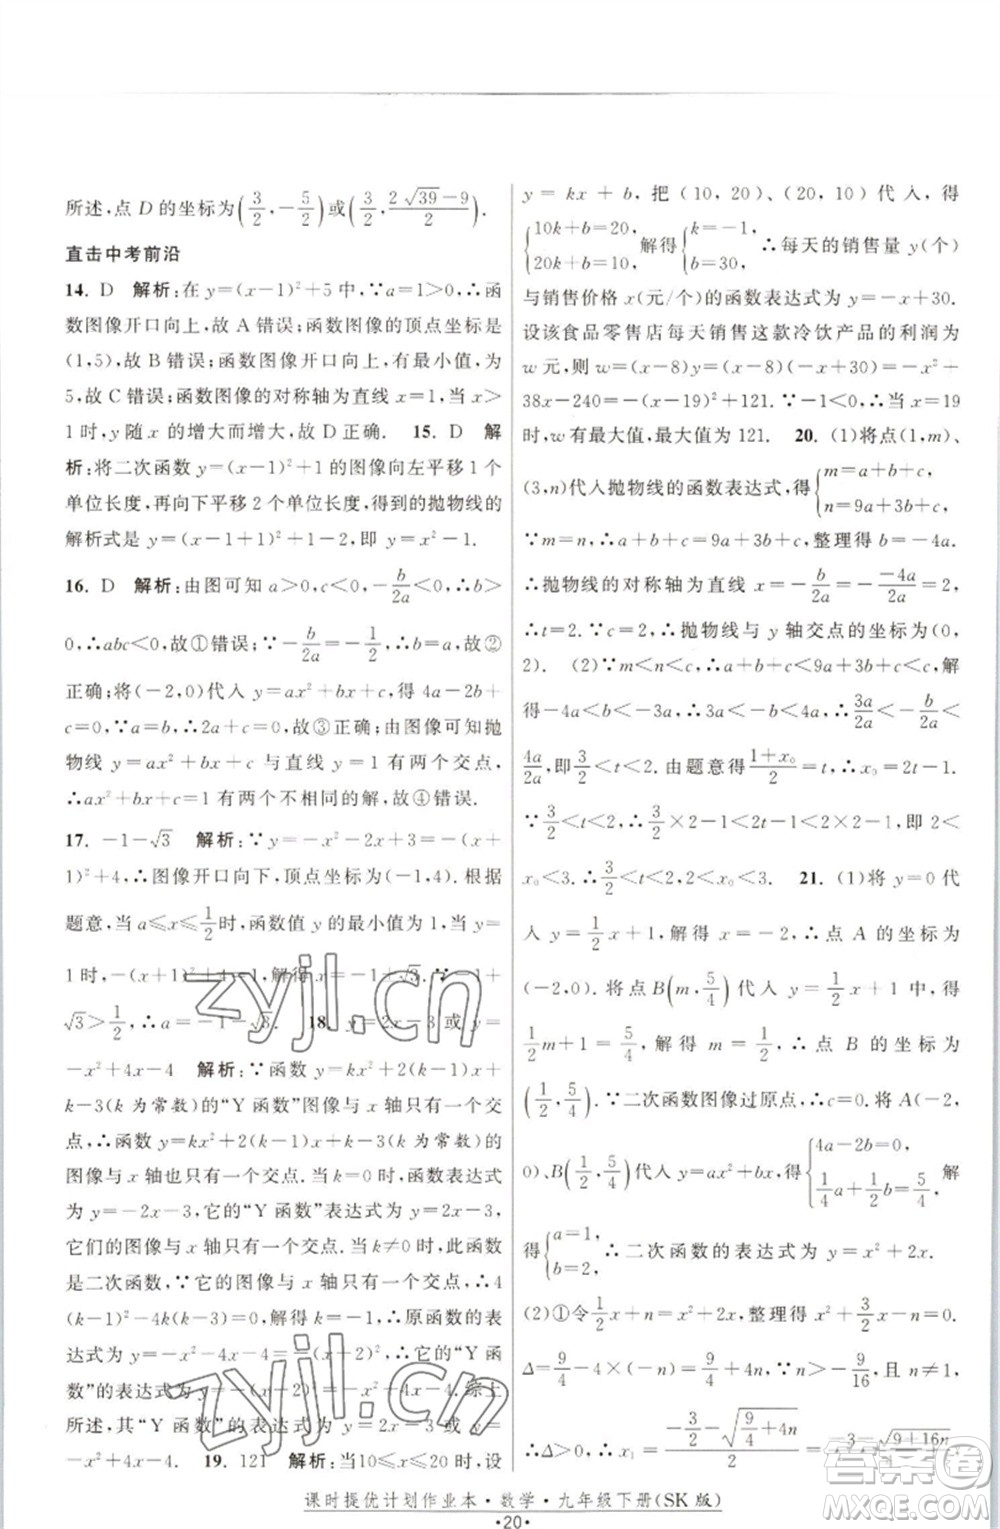 所述,点 D 的坐标为(3/2,-5/2)或(3/2,(2√39-9)/2).
直击中考前沿
14. D 解析:在 y=(x-1)²+5 中,∵a=1>0,∴函
数图像开口向上,故 A 错误;函数图像的顶点坐标是
(1,5),故 B 错误;函数图像开口向上,有最小值,为
5,故 C 错误;函数图像的对称轴为直线 x=1,当 x>
1 时,y 随 x 的增大而增大,故 D 正确. 15. D 解
析:将二次函数 y=(x-1)²+1 的图像向左平移 1 个
单位长度,再向下平移 2 个单位长度,得到的抛物线的
解析式是 y=(x-1+1)²+1-2,即 y=x²-1.
16. D 解析:由图可知 a>0,c<0,-b/2a<0,∴b>
0,∴abc<0,故①错误;∵-b/2a=-1/2,∴a=b,故②
正确;将(-2,0)代入 y=ax²+bx+c,得 4a-2b+
c=0,∵a=b,∴2a+c=0,故③正确;由图像可知抛
物线 y=ax²+bx+c 与直线 y=1 有两个交点,
∴ax²+bx+c=1 有两个不相同的解,故④错误.
17. -1-√3 解析:∵y=-x²-2x+3=-(x+
1)²+4,∴图像开口向下,顶点坐标为(-1,4).根据
题意,当 a≤x≤1/2时,函数值 y 的最小值为 1,当 y=
1 时,-(x+1)²+4=1,解得 x=-1±√3.∵-1+
√3>1/2,∴a=-1-√3. 18. y=2x-3 或 y=
-x²+4x-4 解析:∵函数 y=kx²+2(k-1)x+
k-3(k 为常数)的“Y 函数”图像与 x 轴只有一个交点,
∴函数 y=kx²+2(k-1)x+k-3(k 为常数)的
图像与 x 轴也只有一个交点.当 k=0 时,函数表达式
为 y=-2x-3,它的“Y 函数”表达式为 y=2x-3,
它们的图像与 x 轴只有一个交点.当 k≠0 时,此函数
是二次函数,∵它的图像与 x 轴只有一个交点,∴4
(k-1)²-4k(k-3)=0,解得 k=-1,∴原函数的表
达式为 y=-x²-4x-4,∴它的“Y 函
数”的表达式为 y=-x²+4x-4.综上
所述,其“Y 函数”的表达式为 y=2x-3 或 y=
-x²+4x-4 19. 121 解析:当10≤x≤20 时,设
y=kx+b,把(10,20)、(20,10)代入,得
{10k+b=20, 20k+b=10, 解得{k=-1, b=30, ∴每天的销售量 y(个)
与销售价格 x(元/个)的函数表达式为 y=-x+30.
设该食品零售店每天销售这款冷饮产品的利润为
w 元,则 w=(x-8)y=(x-8)(-x+30)=-x²+
38x-240=-(x-19)²+121.∵-1<0,∴当 x=19
时,w 有最大值,最大值为 121. 20. (1)将点(1,m)、
(3,n)代入抛物线的函数表达式,得{m=a+b+c, n=9a+3b+c,
∵m=n,∴a+b+c=9a+3b+c,整理得 b=-4a.
∴抛物线的对称轴为直线 x=-b/2a=-(-4a)/2a=2,
∴t=2.∵c=2,∴抛物线与 y 轴交点的坐标为(0,
2). (2)∵m<n<c,∴a+b+c<9a+3b+c<c,解
得-4a<b<-3a,∴3a<-b<4a,∴3a/2a<-b/2a<
4a/2a,即3/2<t<2.由题意得(1+x₀)/2=t,∴x₀=2t-1.
∵3/2<t<2,∴3/2×2-1<2t-1<2×2-1,即 2<
x₀<3.∴3/2<t<2,2<x₀<3. 21. (1)将 y=0 代
入 y=1/2x+1,解得 x=-2,∴点 A 的坐标为
(-2,0).将点B(m,5/4)代入 y=1/2x+1 中,得
1/2m+1=5/4,解得 m=1/2,∴点 B 的坐标为
(1/2,5/4).∵二次函数图像过原点,∴c=0.将 A(-2,
0)、B(1/2,5/4)代入 y=ax²+bx,得{4a-2b=0, 1/4a+1/2b=5/4, 解
得{a=1, b=2, ∴二次函数的表达式为 y=x²+2x.
(2)①令1/2x+n=x²+2x,整理得 x²+3/2x-n=0.
Δ=9/4-4×(-n)=9/4+4n,∵n>-9/16,且 n≠1,
∴Δ>0,∴x₁=(-3/2-√(9/4+4n))/2=(-3-√(9+16n))/4,
课时提优计划作业本·数学·九年级下册(SK 版)
·20·
zyjl.cn
答案